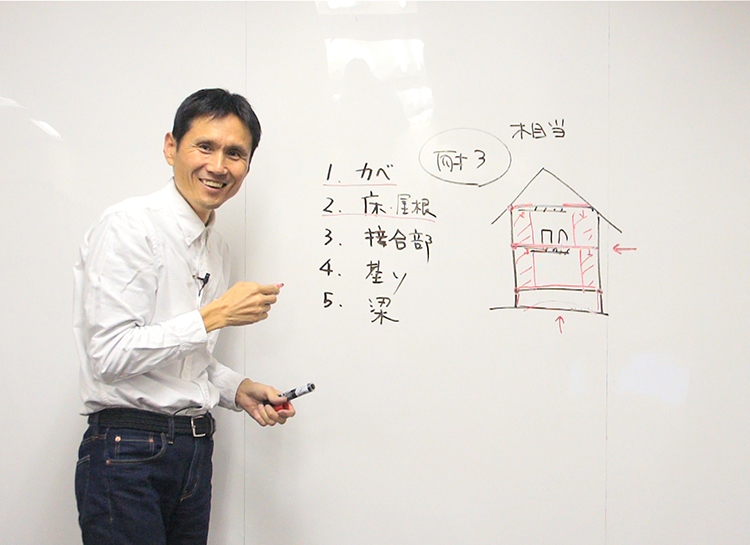 相当
耐3
1. カベ
2. 床・屋根
3. 接合部
4. 基ソ
5. 梁